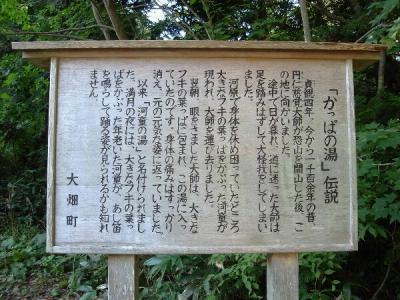 「かっぱの湯」伝説
貞観四年、今から一千百余年の昔、
円仁慈覚大師が恐山を開山した後、こ
の地に向かいました。
途中で日が暮れ、道に迷った大師は
足を踏みはずして大怪我をしてしまい
ました。
河原で身体を休め困っていたところ
大きなフキの葉っぱをかぶった河童が
現われ、大師を運び去りました。
翌朝、眼をさました大師は、大きな
フキの葉っぱに包まれ、この湯に入っ
ていたのです。身体の痛みはすっかり
消え、元の元気な姿に返っていました。
以来「河童の湯」と名付けられまし
た。満月の夜には、大きなフキの葉っ
ぱをかぶった年老いた河童が、あし笛
を鳴らして踊る姿が見られるかも知れ
ません。
大畑町